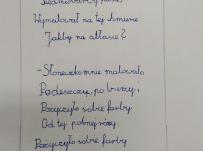 Wymalował na tej chmurze
Jakby na atlasie?
- Słoneczko mnie malowało
Po deszczu, po burzy;
Pożyczyło sobie farby
Od tej polnej róży.
Pożyczyło sobie farby